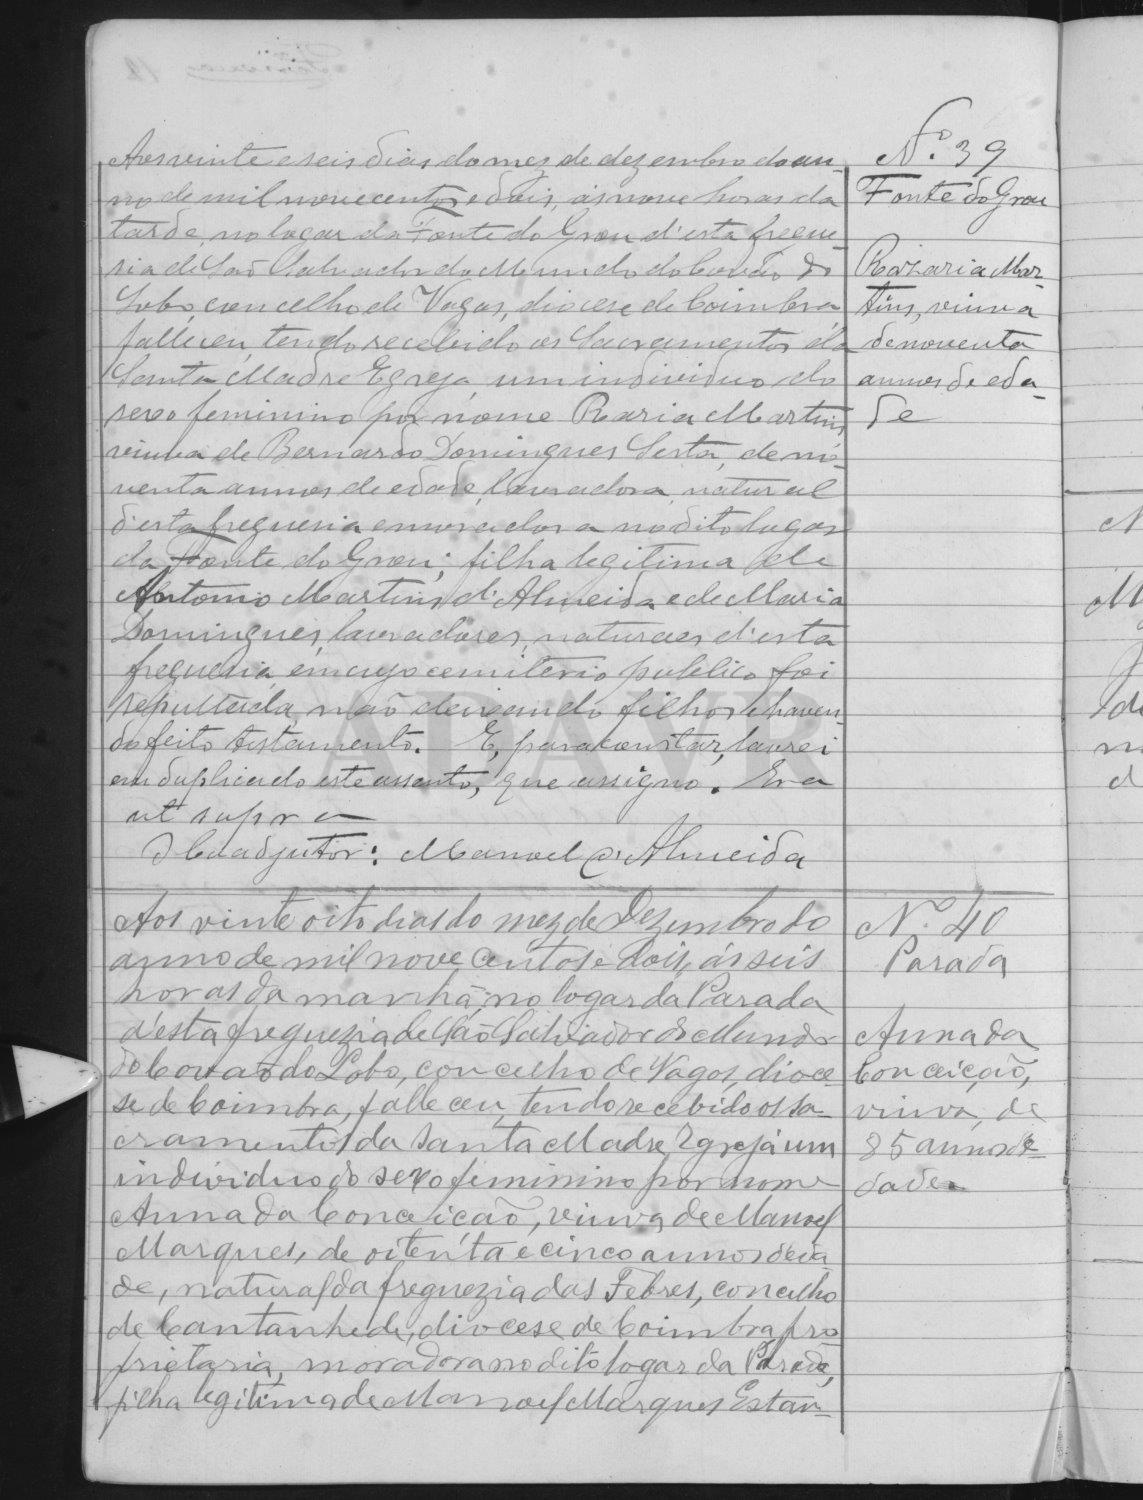 Aos vinte e seis dias do mez de dezembro do an-
no de mil nove centos e dois, ás nove horas da
tarde, no logar da Fonte do Grou d'esta fregue-
sia de São Salvador do Mundo do Covão do
Lobo, concelho de Vagos, diocese de Coimbra
falleceu, tendo recebido os Sacramentos da
Santa Madre Egreja, um individuo do
sexo feminino por nome Razaria Martins,
viuva de Bernardo Domingues Sesta, de no-
venta annos de edade, lavradora, natural
d'esta freguesia e moradora no dito logar
da Fonte do Grou; filha legitima de
Antonio Martins d'Almeida e de Maria
Domingues, lavradores, naturaes d'esta
freguesia, em cujo cemiterio publico foi
sepultada, não deixando filhos e haven-
do feito testamento. E, para constar, lavrei
em duplicado este assento, que assigno. Era
ut supra
O Coadjutor: Manoel d'Almeida
Nº 39
Fonte do Grou
Razaria Mar-
tins, viuva
de noventa
annos de eda-
de
Aos vinte oito dias do mez de Dezembro do
anno de mil nove centos e dois, ás seis
horas da manhã, no logar da Parada
d'esta freguezia de São Salvador do Mundo
do Covão do Lobo, concelho de Vagos, dioce-
se de Coimbra, falleceu, tendo recebido os sa-
cramentos da Santa Madre Egreja um
individuo do sexo feminino por nome
Anna da Conceição, viuva de Manoel
Marques, de oitenta e cinco annos de ida-
de, natural da freguezia das Febres, concelho
de Cantanhede, diocese de Coimbra, pro-
prietaria, moradora no dito logar da Parada,
filha legitima de Manoel Marques Estan-
Nº 40
Parada
Anna da
Conceição,
viuva, de
85 annos de
dade
ADAVR